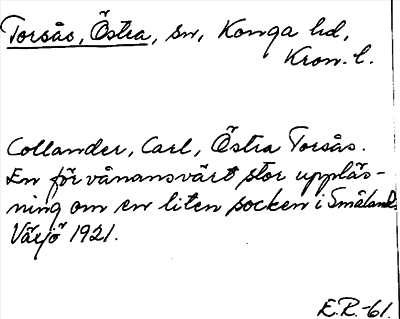 Torsås, Östra, sn, Konga hd,
Kron. l.
Collander, Carl, Östra Torsås.
En förvånansvärt stor uppläs-
ning om en liten socken i Småland.
Växjö 1921.
E.R.-61.